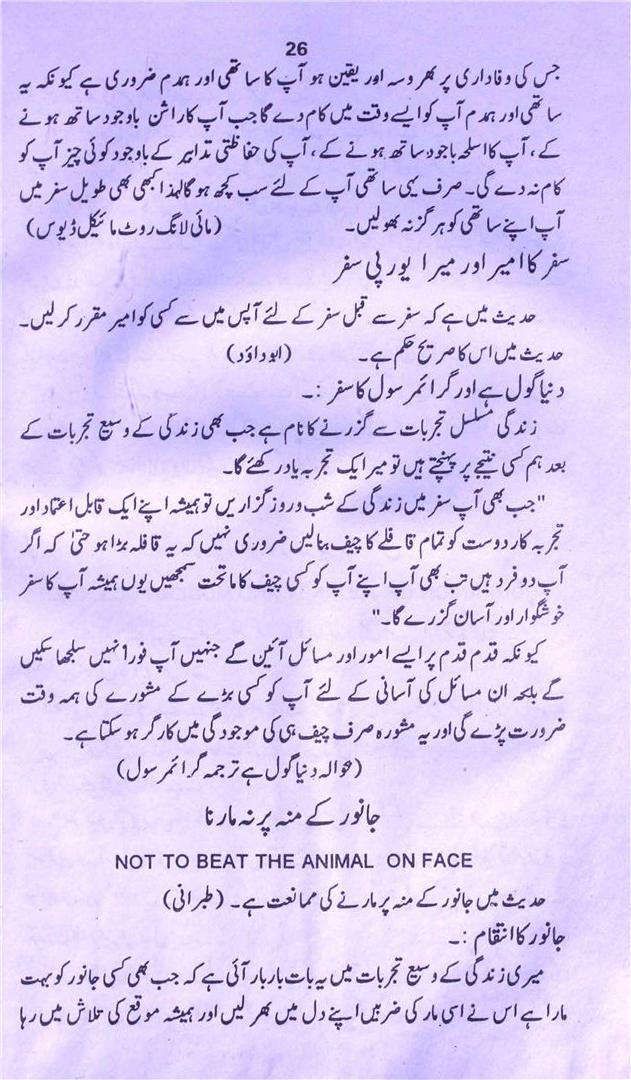 26
جس کی وفاداری پر بھروسہ اور یقین ہو آپ کا ساتھی اور ہمدم ضروری ہے کیونکہ یہ
ساتھی اور ہمدم آپ کو ایسے وقت میں کام دے گا جب آپ کا راشن باوجود ساتھ ہونے
کے، آپ کا اسلحہ باجود ساتھ ہونے کے، آپ کی حفاظتی تدابیر کے باوجود کوئی چیز آپ کو
کام نہ دے گی۔ صرف یہی ساتھی آپ کے لئے سب کچھ ہو گا لہذا کبھی بھی طویل سفر میں
آپ اپنے ساتھی کو ہرگز نہ بھولیں۔ (مائی لانگ روٹ مائیکل ڈیوس)
سفر کا امیر اور میرا یورپی سفر
حدیث میں ہے کہ سفر سے قبل سفر کے لئے آپس میں سے کسی کو امیر مقرر کر لیں۔
حدیث میں اس کا صریح حکم ہے۔ (ابوداؤد)
دنیا گول ہے اور گرائمر سول کا سفر :۔
زندگی مسلسل تجربات سے گزرنے کا نام ہے جب بھی زندگی کے وسیع تجربات کے
بعد ہم کسی نتیجے پر پہنچتے ہیں تو میرا ایک تجربہ یاد رکھئے گا۔
"جب بھی آپ سفر میں زندگی کے شب و روز گزاریں تو ہمیشہ اپنے ایک قابل اعتماد اور
تجربہ کار دوست کو تمام قافلے کا چیف بنالیں ضروری نہیں کہ یہ قافلہ بڑا ہو حتیٰ کہ اگر
آپ دو فرد ہیں تب بھی آپ اپنے آپ کو کسی چیف کا ماتحت سمجھیں یوں ہمیشہ آپ کا سفر
خوشگوار اور آسان گزرے گا۔"
کیونکہ قدم قدم پر ایسے امور اور مسائل آئیں گے جنہیں آپ فوراً نہیں سلجھا سکیں
گے بلکہ ان مسائل کی آسانی کے لئے آپ کو کسی بڑے کے مشورے کی ہمہ وقت
ضرورت پڑے گی اور یہ مشورہ صرف چیف ہی کی موجودگی میں کارگر ہو سکتا ہے۔
(حوالہ دنیا گول ہے ترجمہ گرائمر سول)
جانور کے منہ پر نہ مارنا
NOT TO BEAT THE ANIMAL ON FACE
حدیث میں جانور کے منہ پر مارنے کی ممانعت ہے۔ (طبرانی)
جانور کا انتقام :۔
میری زندگی کے وسیع تجربات میں یہ بات بار بار آئی ہے کہ جب بھی کسی جانور کو بہت
مارا ہے اس نے اسی مار کی ضربیں اپنے دل میں بھر لیں اور ہمیشہ موقع کی تلاش میں رہا